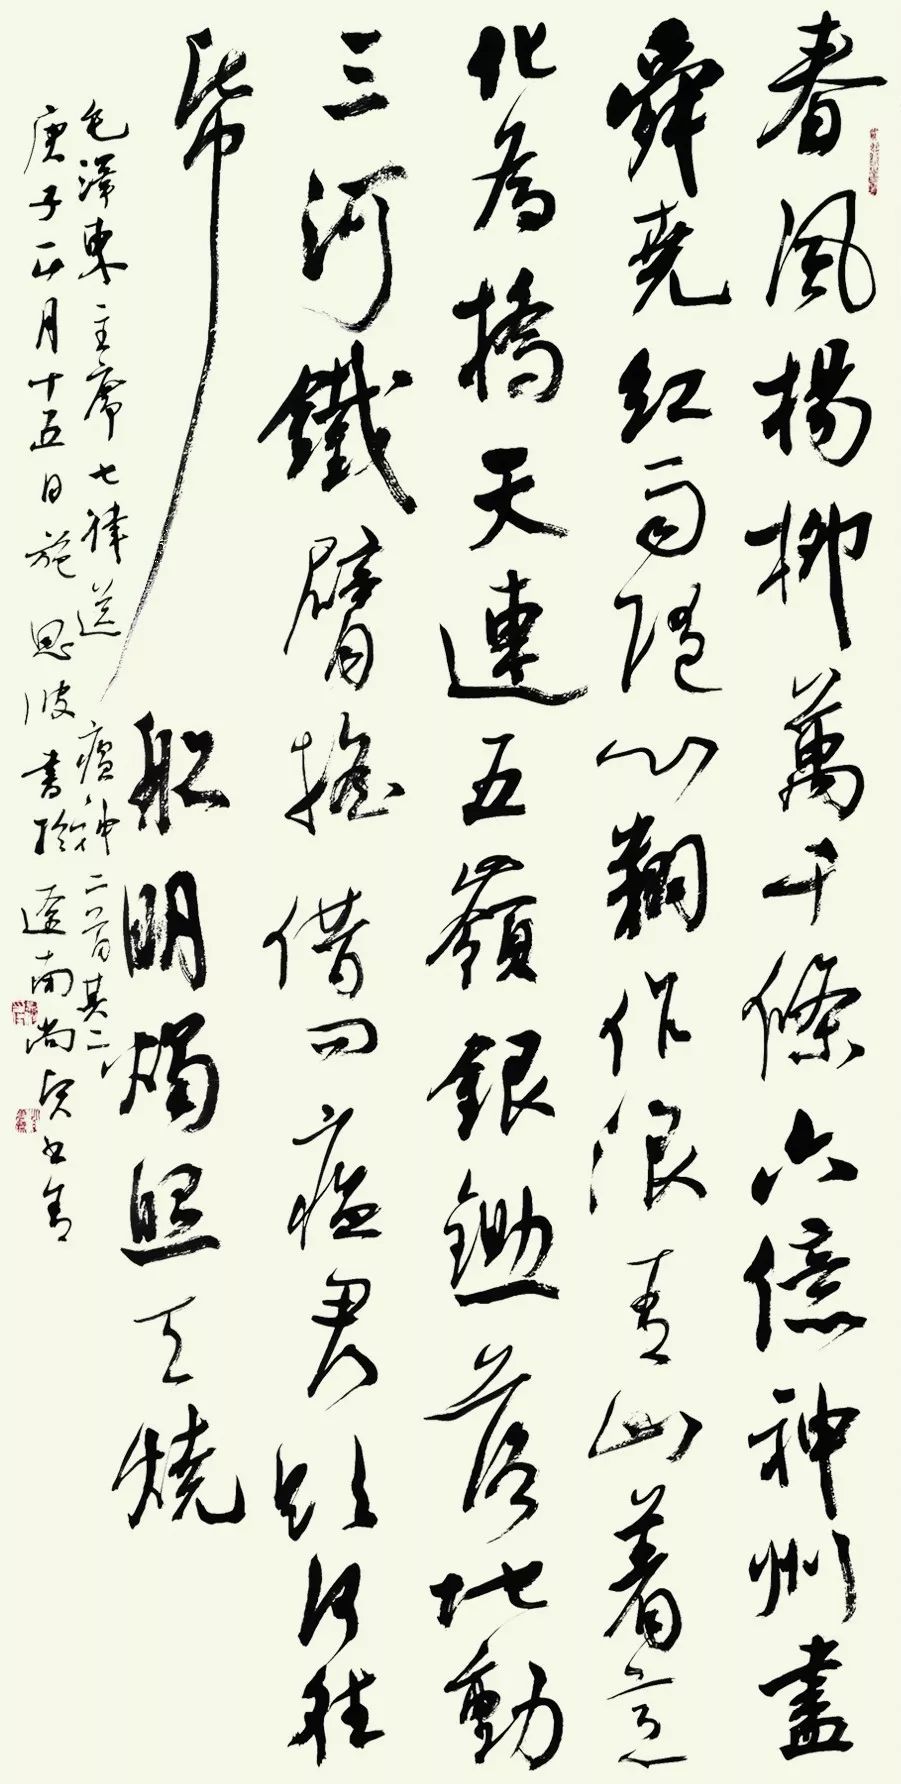 春風楊柳萬千條六億神州盡
舜堯紅雨隨心翻作浪青山着意
化為橋天連五嶺銀鋤落地動
三河鐵臂搖借問瘟君欲何往
帋船明燭照天燒
毛澤東主席七律送瘟神二首其二
庚子正月十五日施恩波書於遼南尚